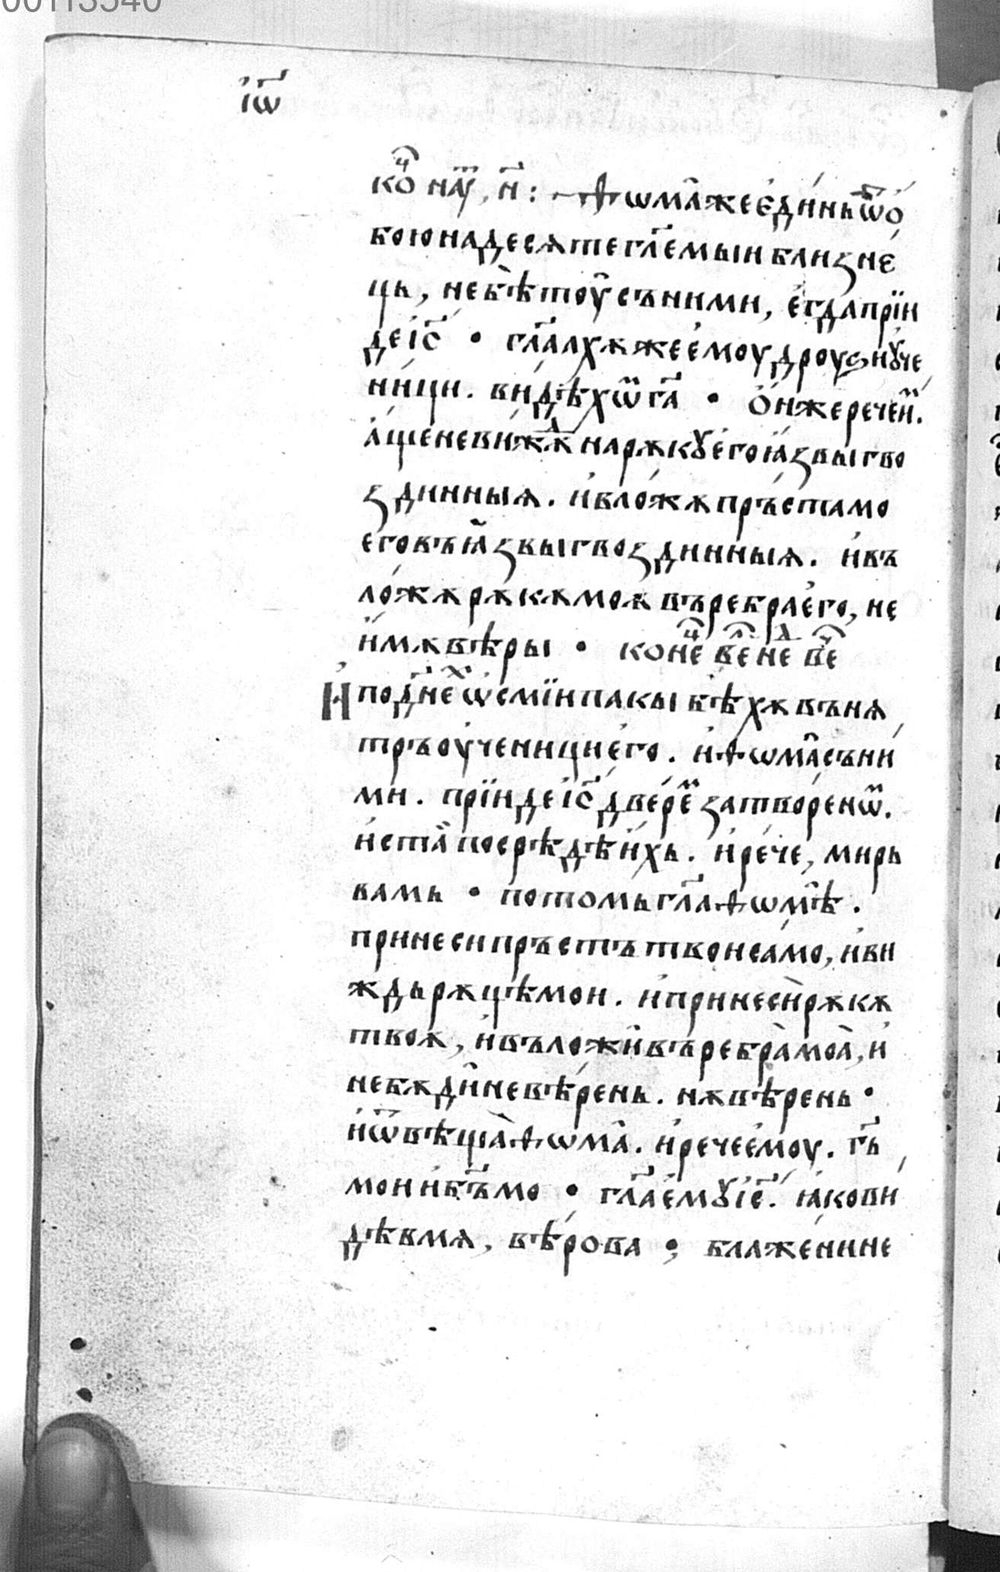 00113540
іѡ҃
кѡ҃ⷱ нау҃, н҃: Ѳѡма̑жееди́ньѿо́
боюнадесѧтегл҃емыиблизне
ць, небѣ̀тоу̑съними, е҆гдапрїи
деі҆с҃ • гл҃алхѫжеемоудроуѕиꙋ҆че
ни́ци. ви́дѣхѡⷨг҃а • О҆нжерече́иⷨ.
а҆щеневи́жⷣѫнарѫкꙋ̀е҆гоꙗ҆́звыгво
здинныѧ. и҆вло́жѫпръстамо
еговъꙗ҆́звыгвоздинныѧ. и҆въ
ло́жѫрѫкѫмоѫвъребраего, не
и҆́мѫвѣ́ры • конеⷱ҇ веⷧ҇ неⷣ веⷱ҇
И҆подⷩ҇неⷯ ѡ҆смїипакыбѣ́хѫвънѧ
тръоу҆ченицие҆го. и҆ѳѡма̑съни
ми. прїидеі҆с҃двере́ⷨзатворенѡⷨ.
и҆ста̀посрѣдѣи҆́хь. и҆ре́че, мирь
вамь • потомьгл҃аѳѡмѣ̑.
принесипръстътвоисѣмо, и҆ви
ждьрѫцѣмои. и҆принесѝрѫкѫ
твоѫ, и҆въложѝвъребра̀моа̀, и҆
небѫдѝневѣ́рень. нѫвѣ́рень •
и҆ѿвѣща̀ѳѡма̑. и҆речеемоу. г҃ь
мои и҆б҃ъмо • гл҃ае҆мꙋ̀і҆с҃. ꙗ҆́кови
дѣвмѧ, вѣ́рова ; блаженине